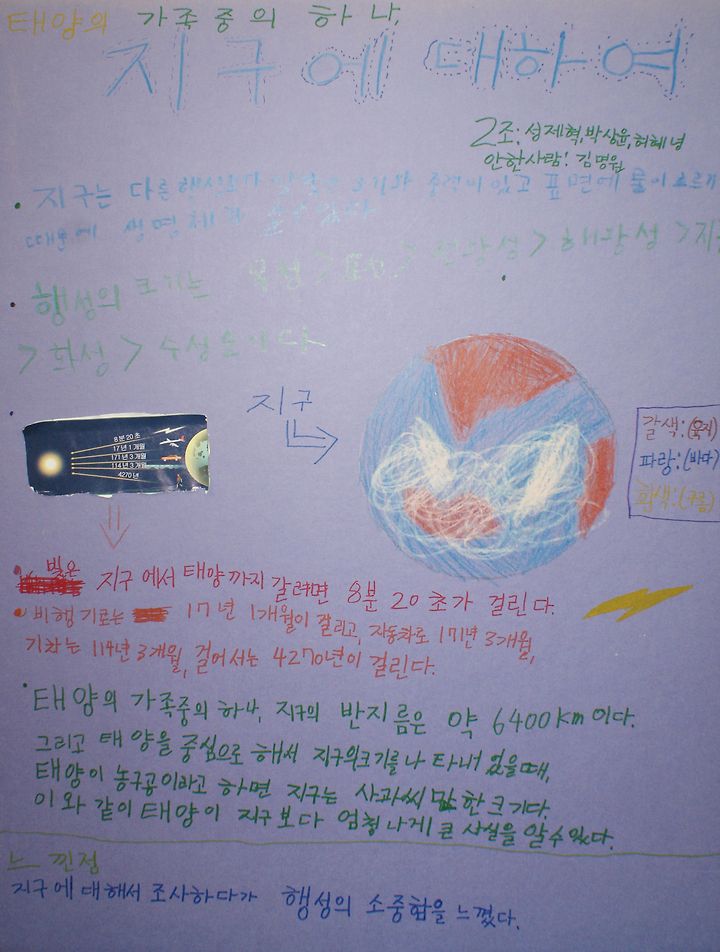 태양의 가족중의 하나,
지구에 대하여
2조: 성제혁, 박상윤, 허혜녕
안한사람! 김명원
• 지구는 다른행성보다 크기와 중력이 있고 표면에 물이 흐르기
때문에 생명체가 살수있다
• 행성의 크기는 목성 > 토성 > 천왕성 > 해왕성 > 지
> 화성 > 수성순이다
지구
8분 20초
17년 1개월
171년 3개월
114년 3개월
4270년
갈색: (육지)
파랑: (바다)
흰색: (구름)
• 빛은 지구에서 태양까지 갈려면 8분 20초가 걸린다.
• 비행기로는 17년 1개월이 걸리고, 자동차로 171년 3개월,
기차는 114년 3개월, 걸어서는 4270년이 걸린다.
• 태양의 가족중의 하나, 지구의 반지름은 약 6400km이다.
그리고 태양을 중심으로 해서 지구의크기를 나타내 었을때,
태양이 농구공이라고 하면 지구는 사과씨 만한크기다.
이와 같이 태양이 지구보다 엄청나게 큰 사실을 알수있다.
느낀점
지구에 대해서 조사하다가 행성의 소중함을 느꼈다.